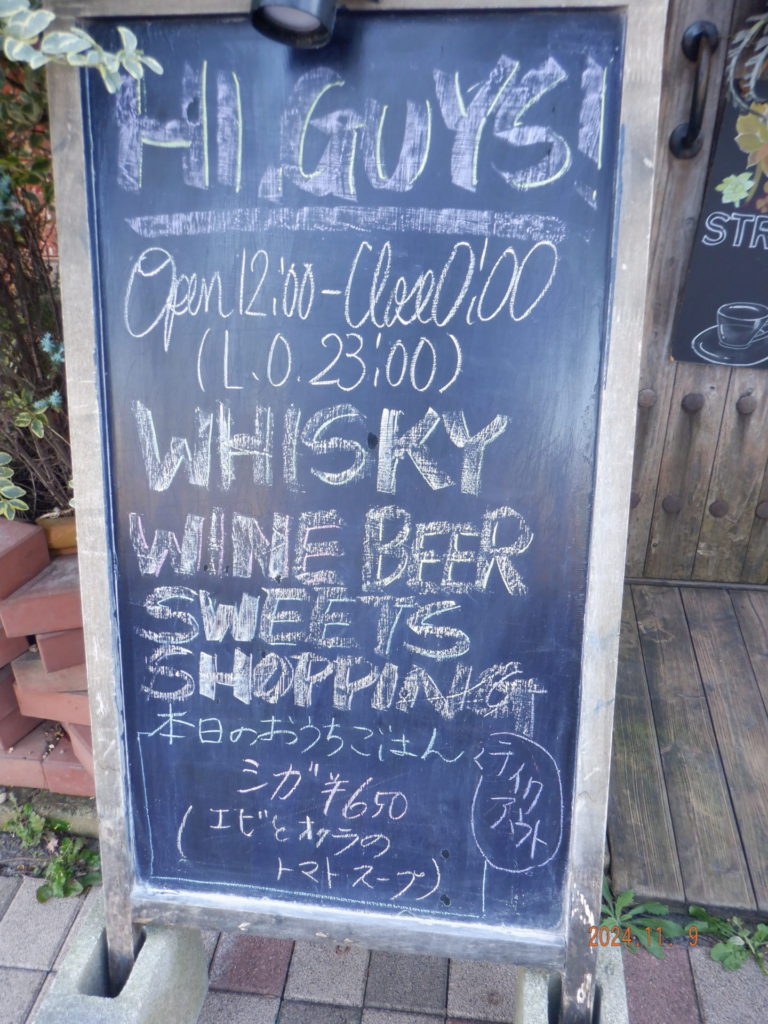 HI,GUYS!
Open 12:00-Close 0:00
(L.O.23:00)
WHISKY
WINE BEER
SWEETS
SHOPPING
本日のおうちごはん
テイク
アウト
シガ ¥650
(エビとオクラの
トマトスープ)
STR
2024.11. 9